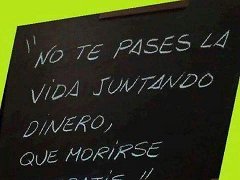 "NO TE PASES LA
VIDA JUNTANDO
DINERO,
QUE MORIRSE